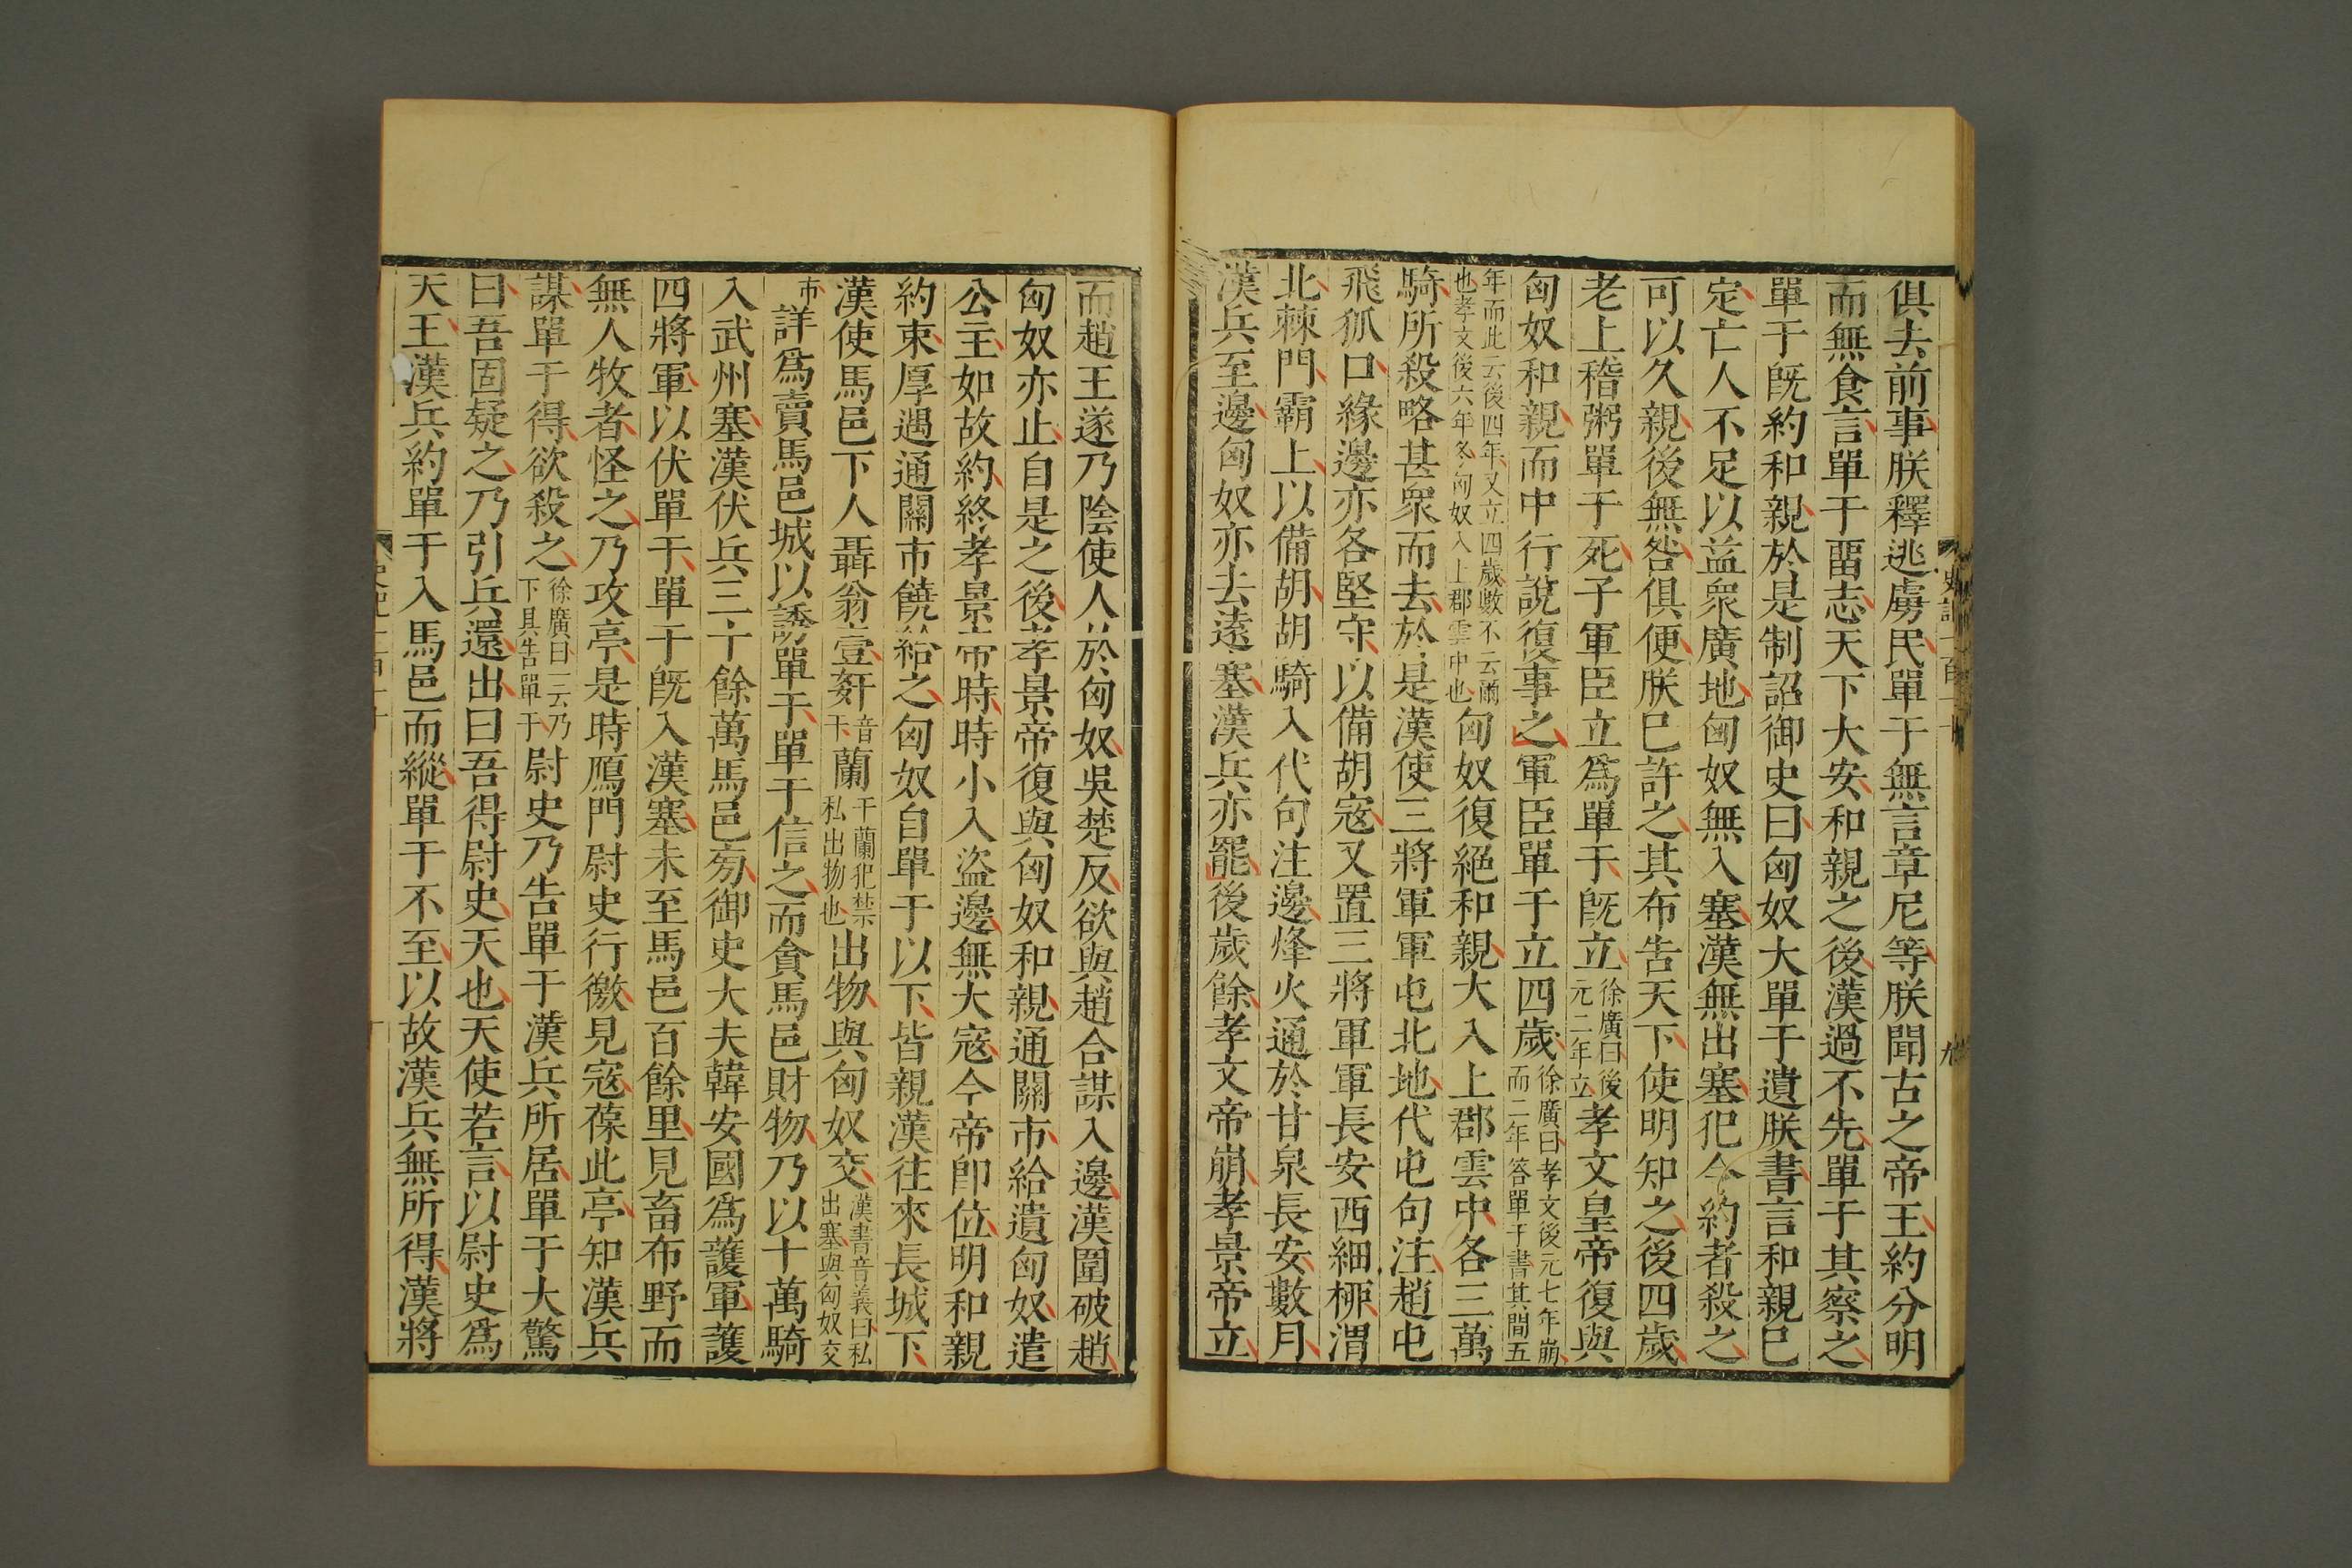 俱去前事朕釋逃虜民單于無言章尼等朕聞古之帝王約分明
而無食言單于畱志天下大安和親之後漢過不先單于其察之
單于旣約和親於是制詔御史曰匈奴大單于遺朕書言和親已
定亡人不足以益衆廣地匈奴無入塞漢無出塞犯今約者殺之
可以久親後無咎俱便朕已許之其布告天下使明知之後四歲
老上稽粥單于死子軍臣立爲單于旣立徐廣曰後元二年立孝文皇帝復與
匈奴和親而中行說復事之軍臣單于立四歲徐廣曰孝文後元七年崩而二年答單于書其間五
年而此云後四年又立四歲數不云爾也孝文後六年冬匈奴入上郡雲中也匈奴復絕和親大入上郡雲中各三萬
騎所殺略甚衆而去於是漢使三將軍軍屯北地代屯句注趙屯
飛狐口緣邊亦各堅守以備胡寇又置三將軍軍長安西細柳渭
北棘門霸上以備胡胡騎入代句注邊烽火通於甘泉長安數月
漢兵至邊匈奴亦去遠塞漢兵亦罷後歲餘孝文帝崩孝景帝立
史記一百一十
九
而趙王遂乃陰使人於匈奴吳楚反欲與趙合謀入邊漢圍破趙
匈奴亦止自是之後孝景帝復與匈奴和親通關市給遺匈奴遣
公主如故約終孝景帝時時小入盜邊無大寇今帝卽位明和親
約束厚遇通關市饒給之匈奴自單于以下皆親漢往來長城下
漢使馬邑下人聶翁壹奸音干蘭干蘭犯禁私出物也出物與匈奴交漢書音義曰私出塞與匈奴交
市詳爲賣馬邑城以誘單于單于信之而貪馬邑財物乃以十萬騎
入武州塞漢伏兵三十餘萬馬邑㫄御史大夫韓安國爲護軍護
四將軍以伏單于單于旣入漢塞未至馬邑百餘里見畜布野而
無人牧者怪之乃攻亭是時鴈門尉史行徼見寇葆此亭知漢兵
謀單于得欲殺之徐廣曰一云乃下具告單于尉史乃告單于漢兵所居單于大驚
曰吾固疑之乃引兵還出曰吾得尉史天也天使若言以尉史爲
天王漢兵約單于入馬邑而縱單于不至以故漢兵無所得漢將